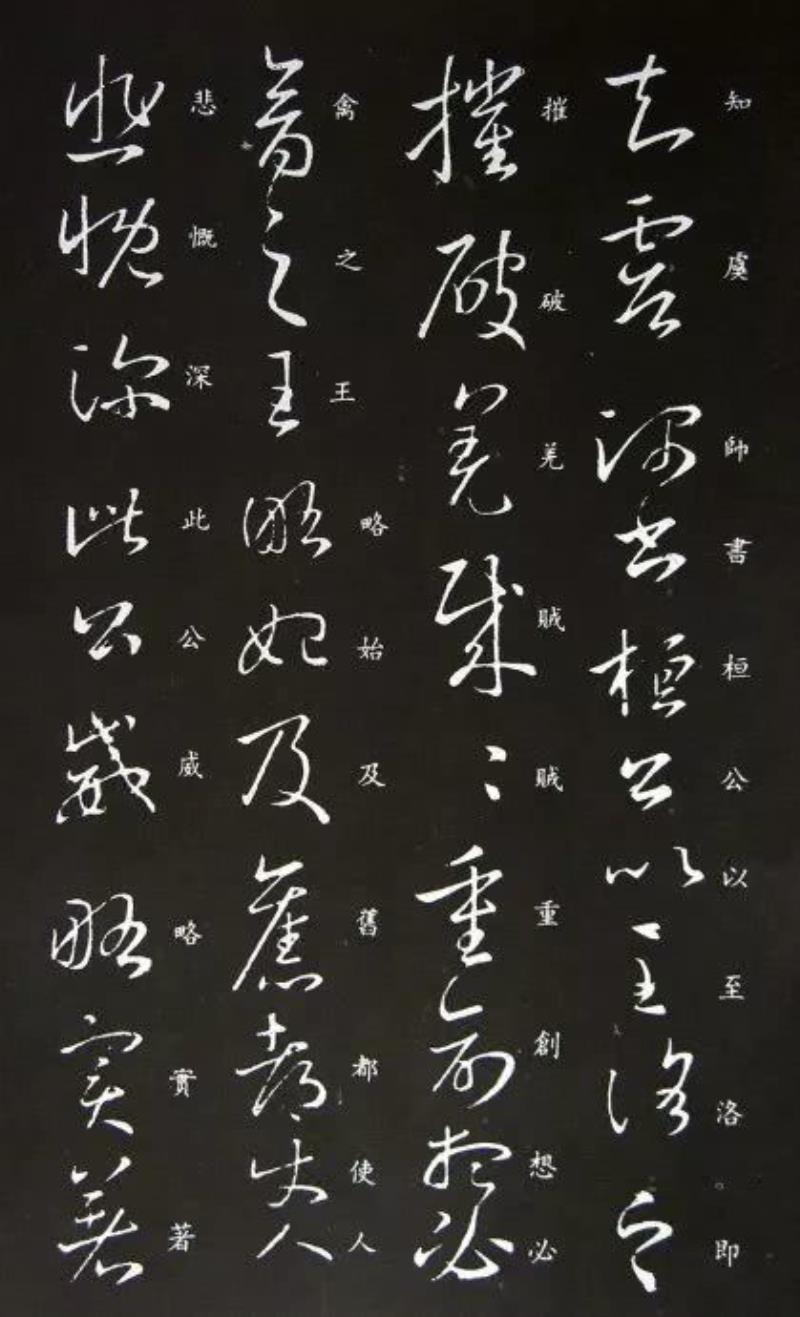 知虞帥書桓公以至洛即
摧破羌賊賊重創想必
禽之王略始及舊都使人
悲慨深此公威略實著